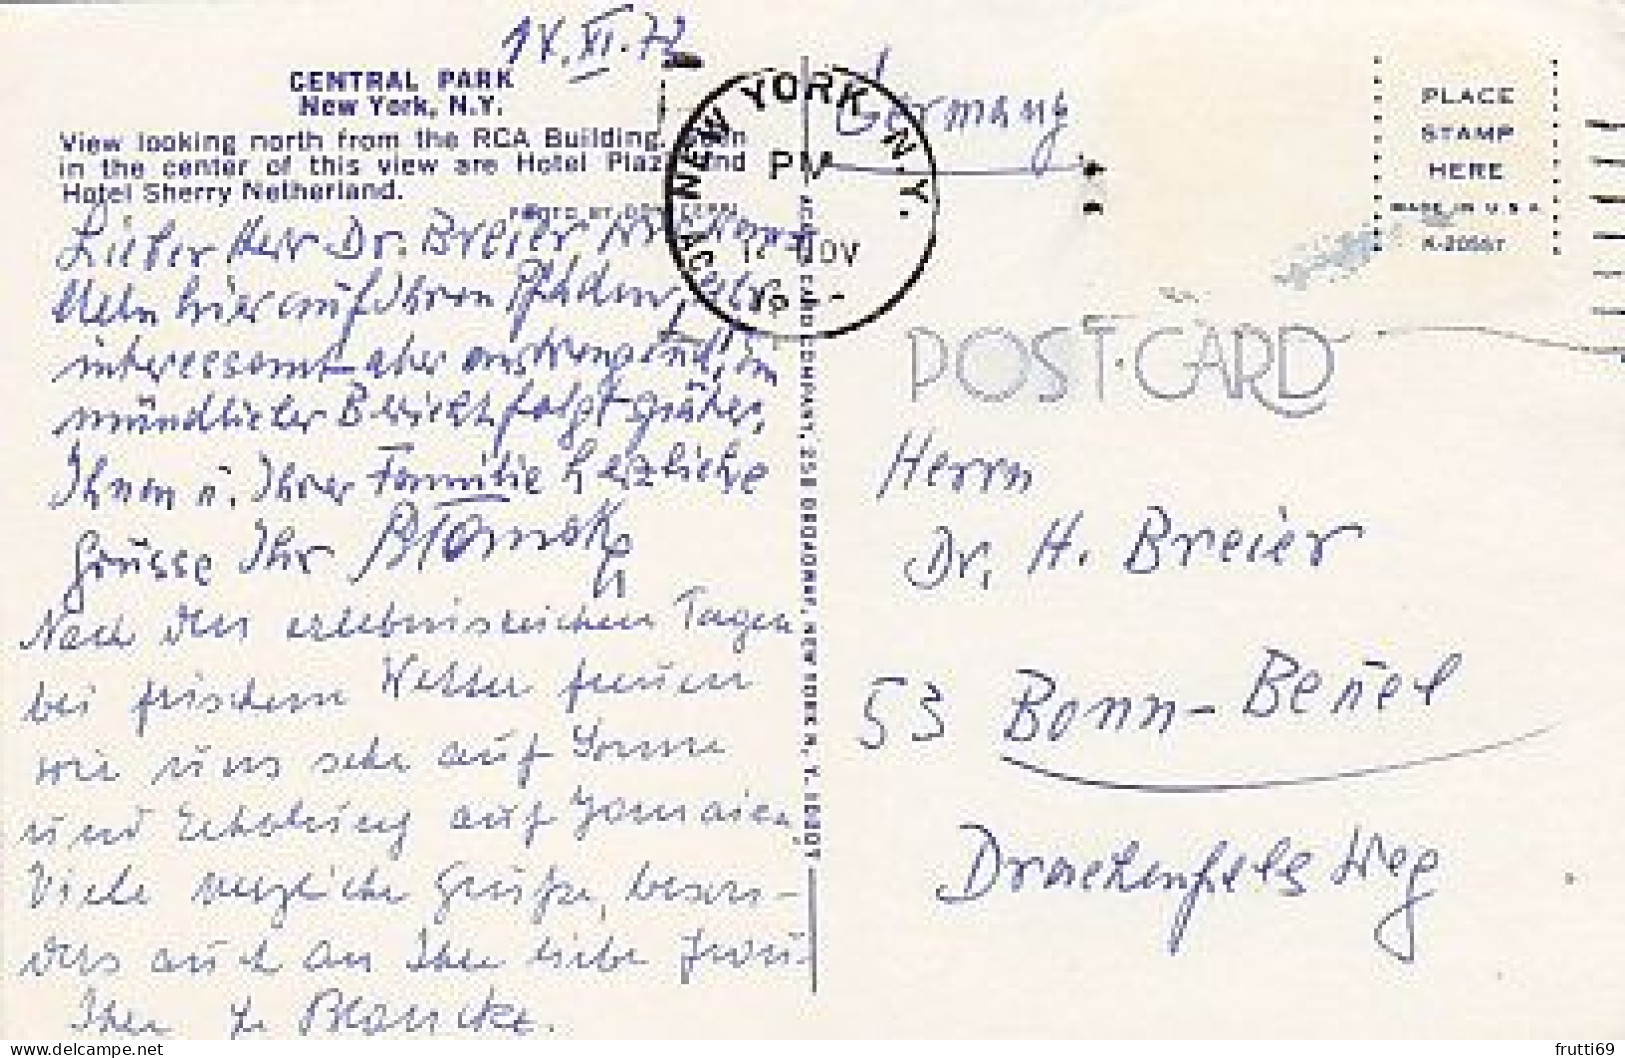 14.XI.72
CENTRAL PARK
New York, N.Y.
View looking north from the RCA Building. Seen
in the center of this view are Hotel Plaza and
Hotel Sherry Netherland.
PHOTO BY
NEW YORK, N.Y.
PM
NOV
Germany
PLACE
STAMP
HERE
MADE IN U.S.A.
K-20557
POST CARD
CARD COMPANY, 258 BROADWAY, NEW YORK N.Y. 10007
Lieber Herr Dr. Breier
hier auf Ihren Pfaden, sehr
interessant aber anstrengend, im
mündlicher Bericht folgt später,
Ihnen u. Ihrer Familie herzliche
Grüsse Ihr
Nach den erlebnisreichen Tagen
bei frischem Wetter freuen
wir uns sehr auf Sonne
und Erholung auf Jamaica
Viele herzliche Grüße, beson-
ders auch an Ihre liebe Frau
Ihre Blancke.
Herrn
Dr. H. Breier
53 Bonn-Beuel
Drachenfels Weg
delcampe.net
frutti69